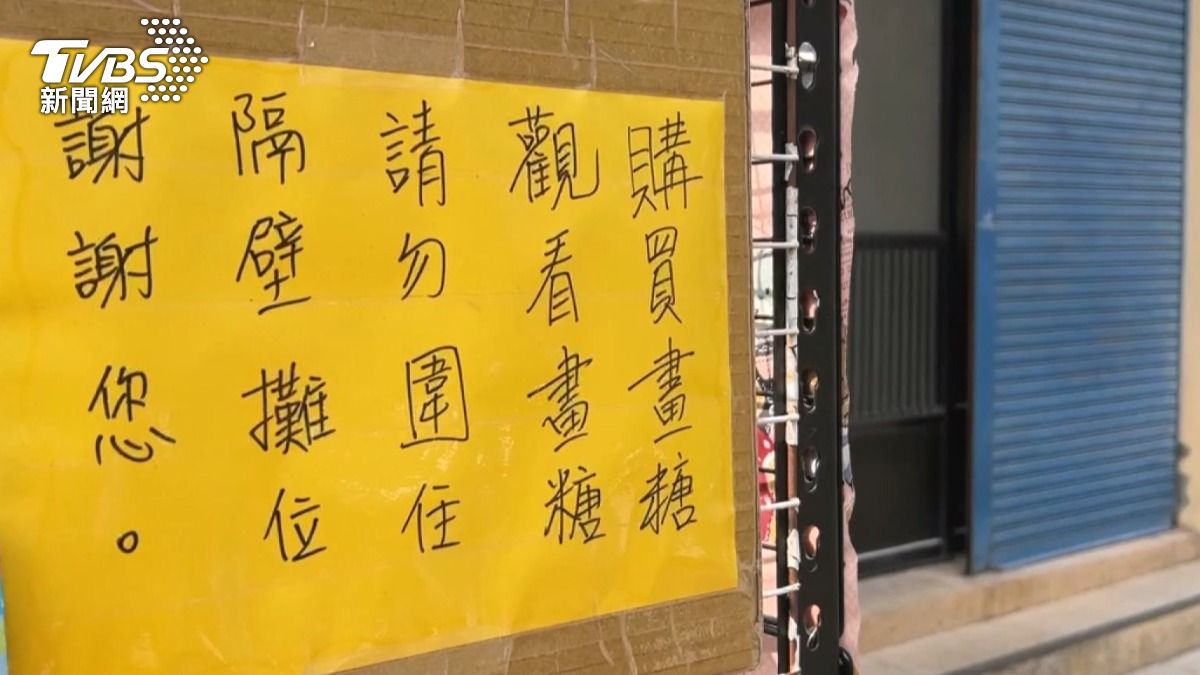 TVBS
新聞網
購買畫糖
觀看畫糖
請勿圍住
隔壁攤位
謝謝您。